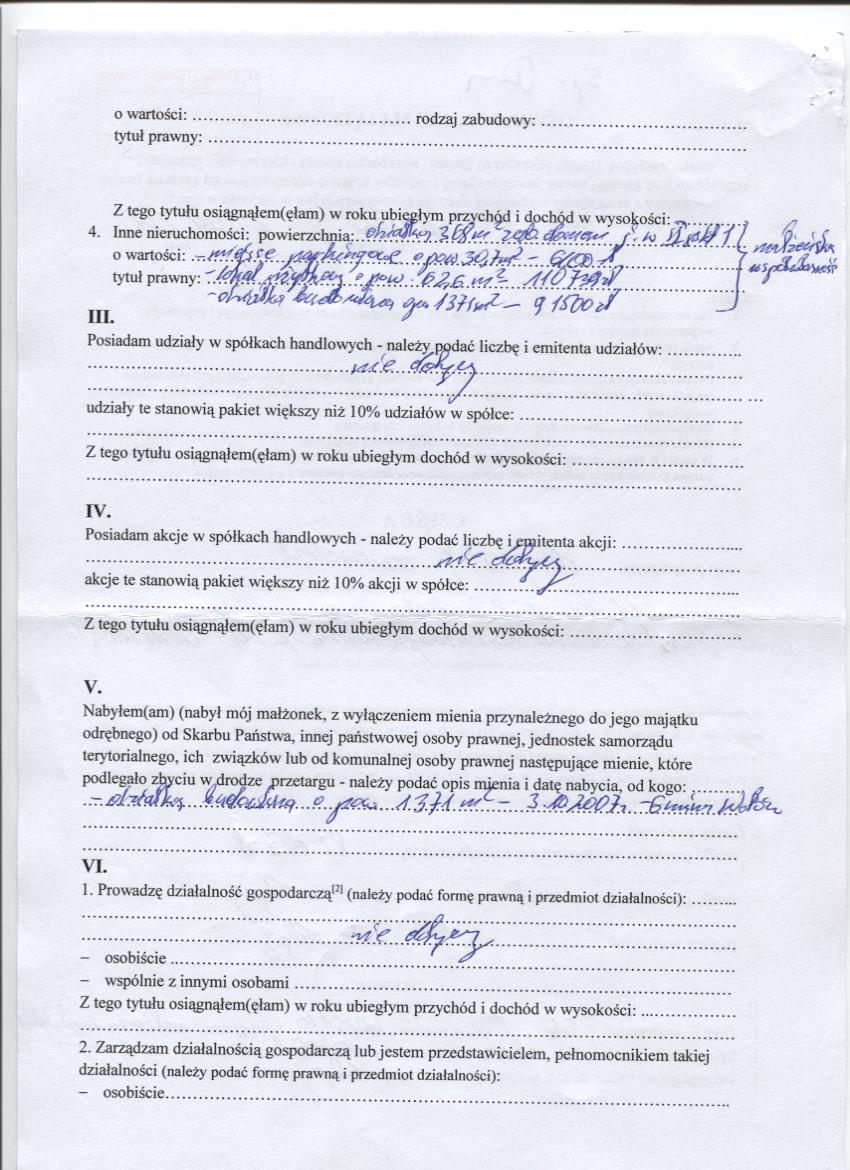 o wartości: ........................................ rodzaj zabudowy: ......................................
tytuł prawny: ..................................................................................................
Z tego tytułu osiągnąłem(ęłam) w roku ubiegłym przychód i dochód w wysokości: ............
4. Inne nieruchomości: powierzchnia: działka 358 m² domem j.w II pkt 1 } małżeńska
o wartości: - miejsce parkingowe o pow. 30,7 m² - 6100 zł współwłasność
tytuł prawny: - lokal o pow. 62,6 m² - 110739 zł
- działka budowlana 1371 m² - 91500 zł
III.
Posiadam udziały w spółkach handlowych - należy podać liczbę i emitenta udziałów: ..............
nie dotyczy
..................................................................................................................... ...
udziały te stanowią pakiet większy niż 10% udziałów w spółce: ........................................
.....................................................................................................................
Z tego tytułu osiągnąłem(ęłam) w roku ubiegłym dochód w wysokości: ...............................
.....................................................................................................................
IV.
Posiadam akcje w spółkach handlowych - należy podać liczbę i emitenta akcji: .....................
nie dotyczy
akcje te stanowią pakiet większy niż 10% akcji w spółce: ................................................
.....................................................................................................................
Z tego tytułu osiągnąłem(ęłam) w roku ubiegłym dochód w wysokości: ...............................
V.
Nabyłem(am) (nabył mój małżonek, z wyłączeniem mienia przynależnego do jego majątku
odrębnego) od Skarbu Państwa, innej państwowej osoby prawnej, jednostek samorządu
terytorialnego, ich związków lub od komunalnej osoby prawnej następujące mienie, które
podlegało zbyciu w drodze przetargu - należy podać opis mienia i datę nabycia, od kogo: .........
- działka budowlana o pow. 1371 m² - 3.10.2007r. - Gmina
.....................................................................................................................
.....................................................................................................................
VI.
1. Prowadzę działalność gospodarczą[2] (należy podać formę prawną i przedmiot działalności): .........
.....................................................................................................................
nie dotyczy
– osobiście ....................................................................................................
– wspólnie z innymi osobami .............................................................................
Z tego tytułu osiągnąłem(ęłam) w roku ubiegłym przychód i dochód w wysokości: ...................
.....................................................................................................................
2. Zarządzam działalnością gospodarczą lub jestem przedstawicielem, pełnomocnikiem takiej
działalności (należy podać formę prawną i przedmiot działalności):
– osobiście....................................................................................................